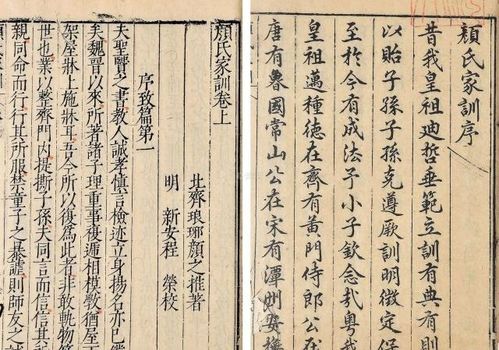 顔氏家訓序
昔我皇祖迪哲垂範立訓有典有則
以貽子孫子孫克遵厥訓明徵定保
至於今有成法予小子欽念㦲粤我
皇祖邁種徳在齊有黃門侍郎公在
唐有魯國常山公在宋有潭州
顔氏家訓卷上
北齊琅琊顔之推著
明 新安程榮校
序致篇第一
夫聖賢之書教人誠孝慎言檢迹立身揚名亦已
矣魏晉以來所著諸子理重事複遞相模斆猶屋
架屋牀上施牀耳吾今所以復為此者非敢軌物
世也業以整齊門内提撕子孫夫同言而信信其
親同命而行行其所服禁童子之暴謔則師友之